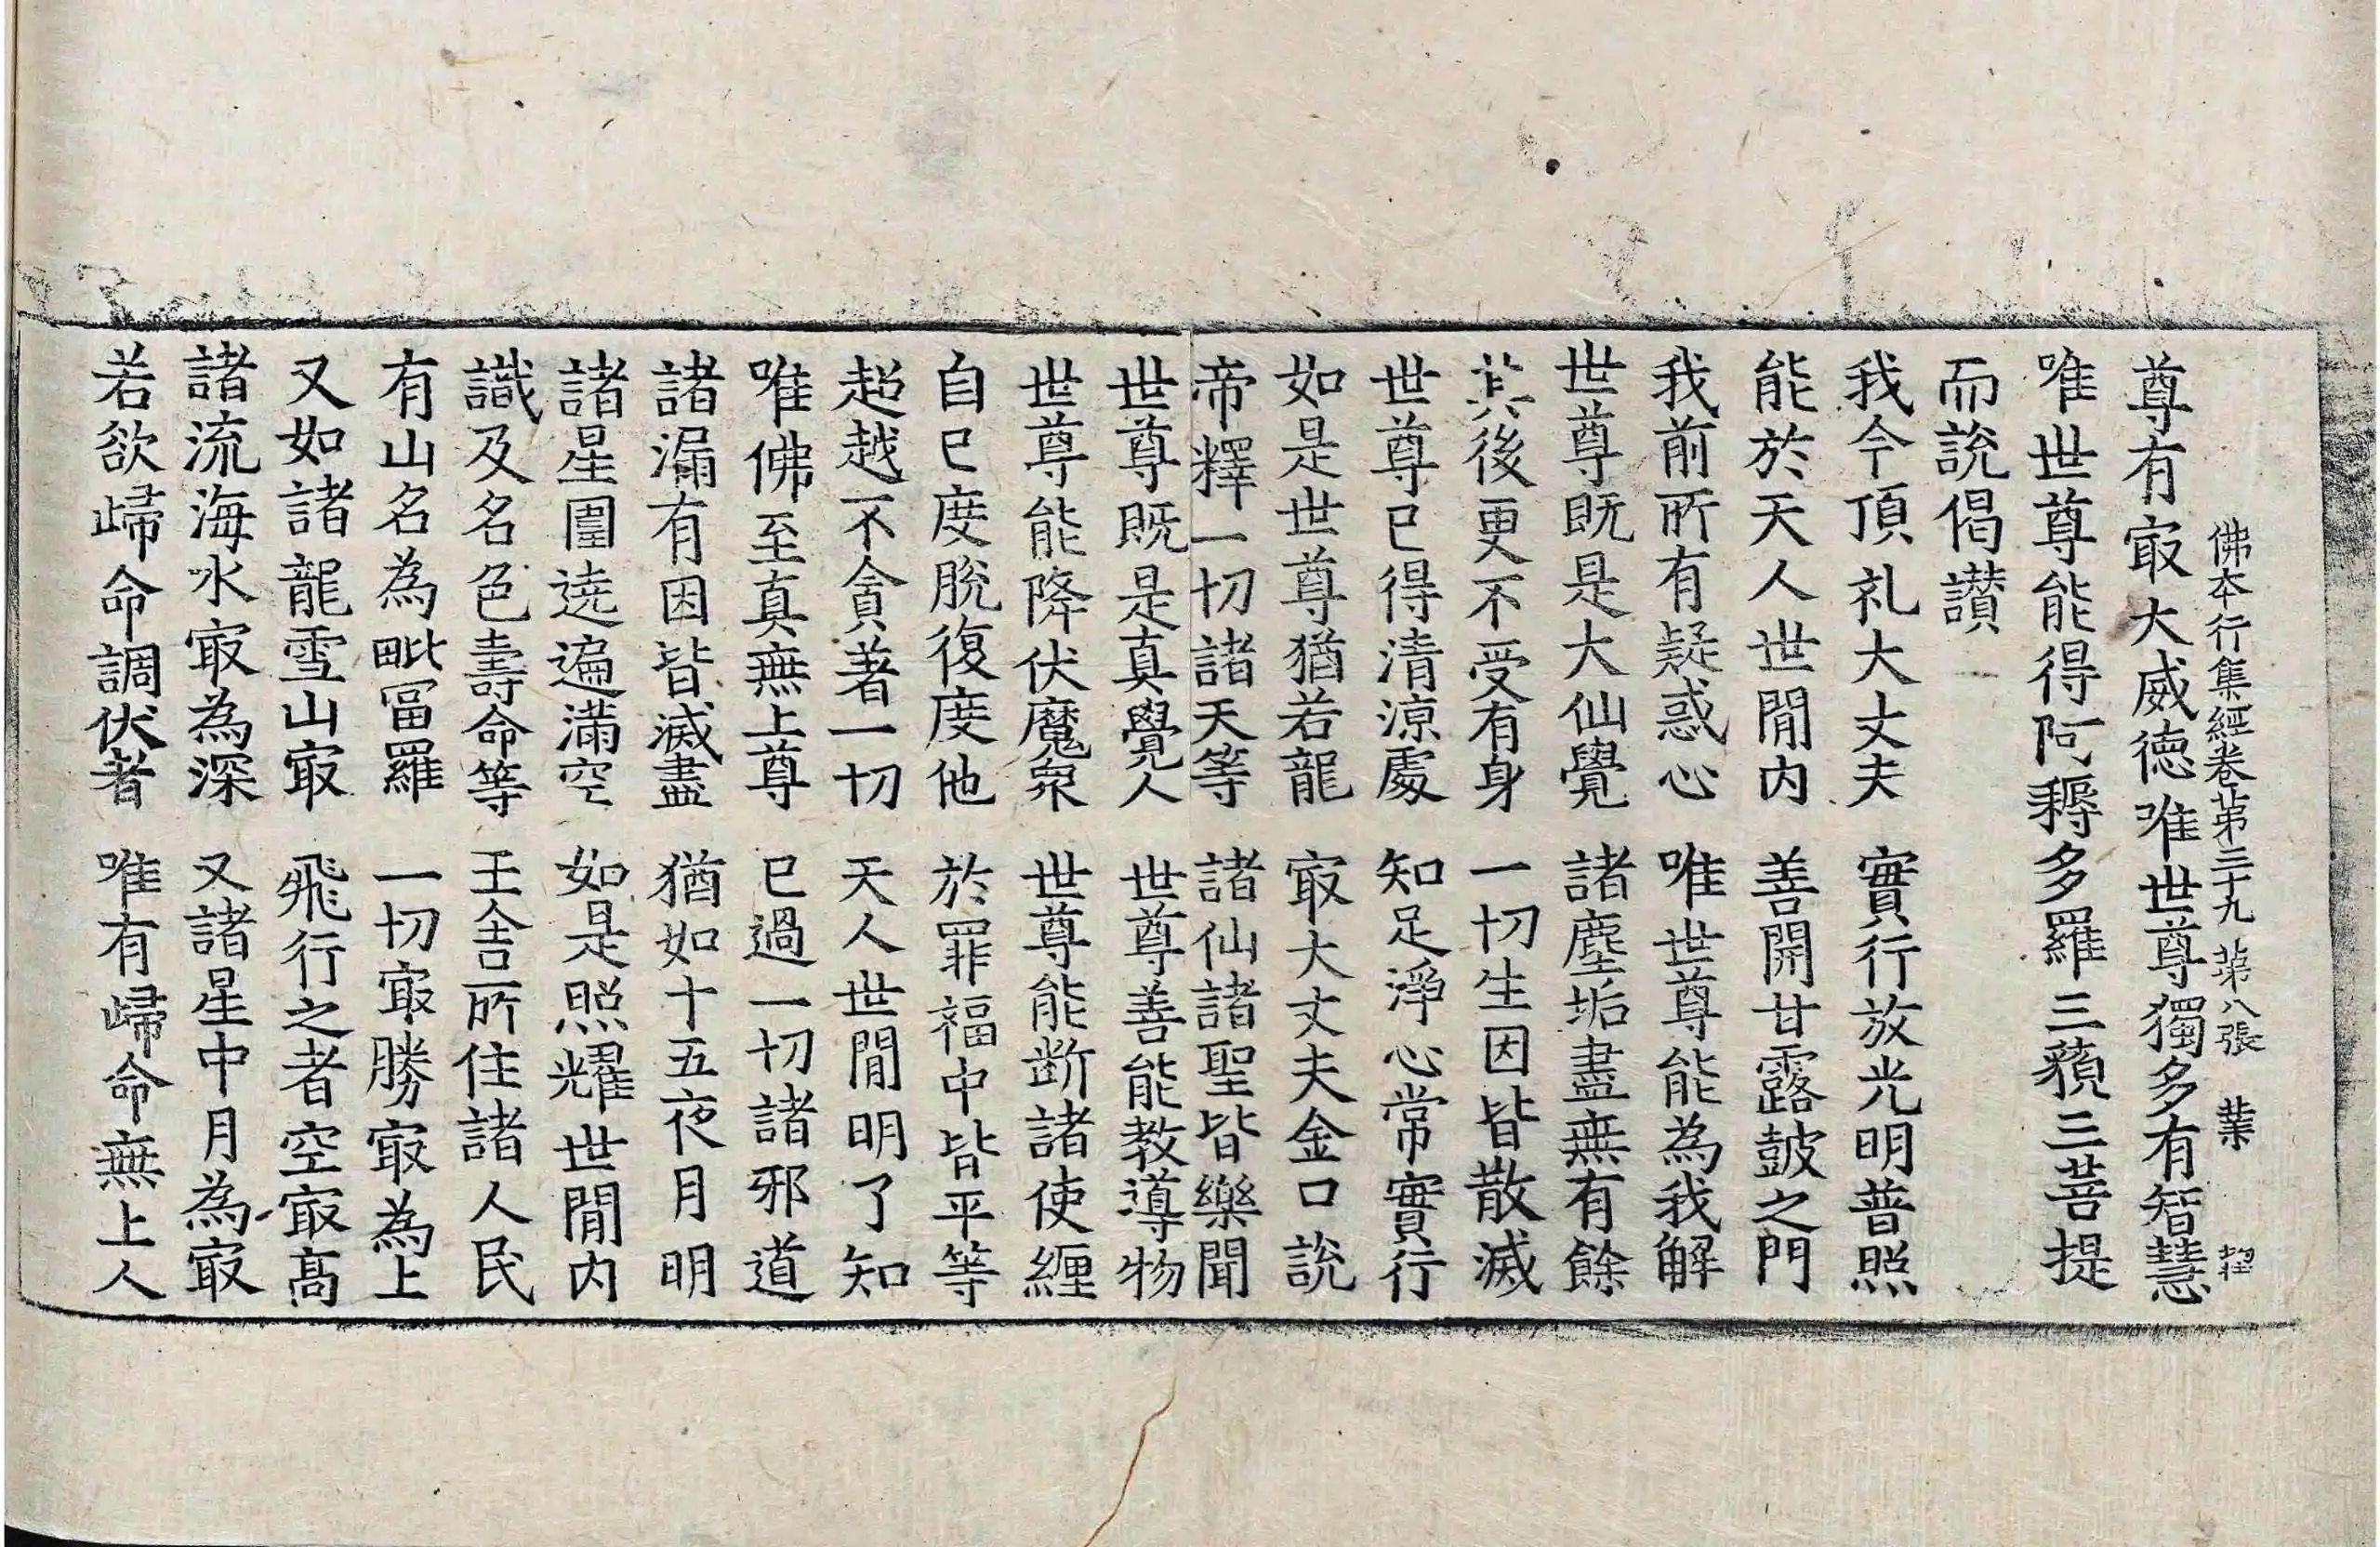 佛本行集經卷苐三十九 苐八張 業
尊有㝡大威德唯世尊獨多有智慧
唯世尊能得阿耨多羅三藐三菩提
而說偈讃
我今頂礼大丈夫 實行放光明普照
能於天人世間内 善開甘露皷之門
我前所有疑惑心 唯世尊能為我解
世尊既是大仙覺 諸塵垢盡無有餘
其後更不受有身 一切生因皆散滅
世尊已得清涼處 知足淨心常實行
如是世尊猶若龍 㝡大丈夫金口說
帝釋一切諸天等 諸仙諸聖皆樂聞
世尊既是真覺人 世尊善能教導物
世尊能降伏魔衆 世尊能断諸使纒
自己度脫復度他 於罪福中皆平等
超越不貪著一切 天人世間明了知
唯佛至真無上尊 已過一切諸邪道
諸漏有因皆滅盡 猶如十五夜月明
諸星圍遶遍滿空 如是照耀世間内
識及名色壽命等 王舍所住諸人民
有山名為毗冨羅 一切㝡勝㝡為上
又如諸龍雪山㝡 飛行之者空㝡髙
諸流海水㝡為深 又諸星中月為㝡
若欲歸命調伏者 唯有歸命無上人